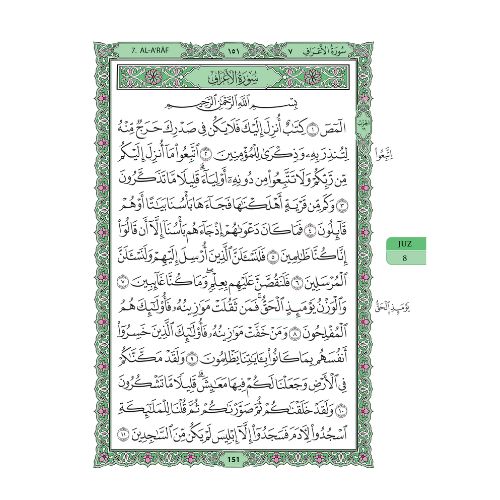 7. AL-A'RĀF ١٥١ ٧ سُورَةُ الْأَعْرَافِ
سُورَةُ الْأَعْرَافِ
بِسْمِ اللَّهِ الرَّحْمَٰنِ الرَّحِيمِ
الٓمٓصٓ ١ كِتَٰبٌ أُنزِلَ إِلَيْكَ فَلَا يَكُن فِى صَدْرِكَ حَرَجٌ مِّنْهُ
لِتُنذِرَ بِهِۦ وَذِكْرَىٰ لِلْمُؤْمِنِينَ ٢ ٱتَّبِعُوا۟ مَآ أُنزِلَ إِلَيْكُم
مِّن رَّبِّكُمْ وَلَا تَتَّبِعُوا۟ مِن دُونِهِۦٓ أَوْلِيَآءَ ۗ قَلِيلًا مَّا تَذَكَّرُونَ
٣ وَكَم مِّن قَرْيَةٍ أَهْلَكْنَٰهَا فَجَآءَهَا بَأْسُنَا بَيَٰتًا أَوْ هُمْ
قَآئِلُونَ ٤ فَمَا كَانَ دَعْوَىٰهُمْ إِذْ جَآءَهُم بَأْسُنَآ إِلَّآ أَن قَالُوٓا۟
إِنَّا كُنَّا ظَٰلِمِينَ ٥ فَلَنَسْـَٔلَنَّ ٱلَّذِينَ أُرْسِلَ إِلَيْهِمْ وَلَنَسْـَٔلَنَّ
ٱلْمُرْسَلِينَ ٦ فَلَنَقُصَّنَّ عَلَيْهِم بِعِلْمٍ ۖ وَمَا كُنَّا غَآئِبِينَ ٧
وَٱلْوَزْنُ يَوْمَئِذٍ ٱلْحَقُّ ۚ فَمَن ثَقُلَتْ مَوَٰزِينُهُۥ فَأُو۟لَٰٓئِكَ هُمُ
ٱلْمُفْلِحُونَ ٨ وَمَنْ خَفَّتْ مَوَٰزِينُهُۥ فَأُو۟لَٰٓئِكَ ٱلَّذِينَ خَسِرُوٓا۟
أَنفُسَهُم بِمَا كَانُوا۟ بِـَٔايَٰتِنَا يَظْلِمُونَ ٩ وَلَقَدْ مَكَّنَّٰكُمْ
فِى ٱلْأَرْضِ وَجَعَلْنَا لَكُمْ فِيهَا مَعَٰيِشَ ۗ قَلِيلًا مَّا تَشْكُرُونَ
١٠ وَلَقَدْ خَلَقْنَٰكُمْ ثُمَّ صَوَّرْنَٰكُمْ ثُمَّ قُلْنَا لِلْمَلَٰٓئِكَةِ
ٱسْجُدُوا۟ لِءَادَمَ فَسَجَدُوٓا۟ إِلَّآ إِبْلِيسَ لَمْ يَكُن مِّنَ ٱلسَّٰجِدِينَ ١١
151
إِتَّبِعُوا۟
JUZ
8